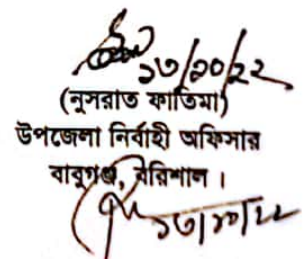 ১৩/১০/২২
(নুসরাত ফাতিমা)
উপজেলা নির্বাহী অফিসার
বাবুগঞ্জ, বরিশাল।
১৩/১০/২২